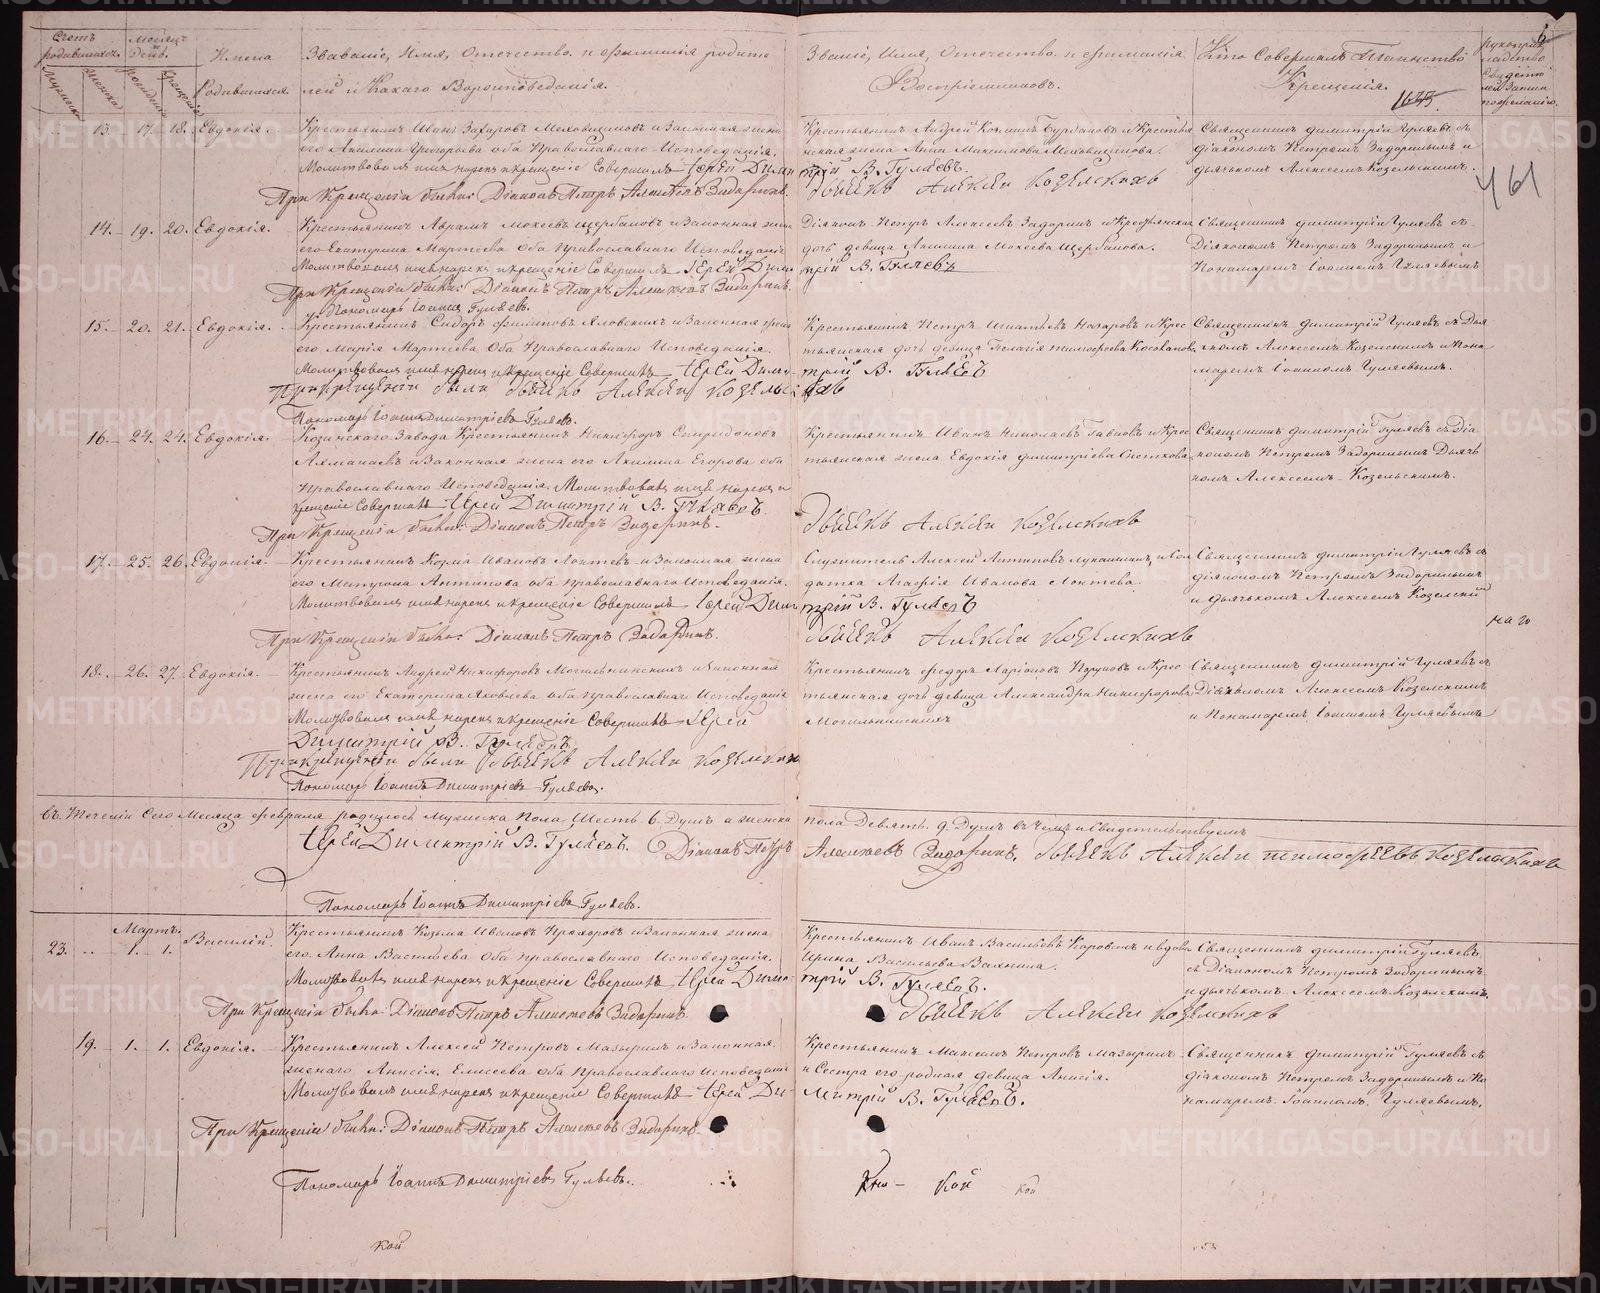 Счетъ родившихся.
Мѣсяцъ и день.
Имена Родившихся
Званіе, Имя, Отечество и фамилія родите
лей и Какаго Вѣроисповѣданія.
Званіе, Имя, Отечество и фамилія
Воспріемниковъ.
Кто Совершалъ Таинство
Крещенія.
мужеска
женска
рожденія
крещенія
6
1623
461
13. 17. 18. Евдокія.
Крестьянинъ Иванъ Захаровъ и Законная жена
его Акилина Григорьева оба Православнаго Исповѣданія.
Молитвовалъ имя нарекъ и крещеніе Совершалъ Іерей Дими
трій В. Гуляевъ.
При Крещеніи были: Діаконъ Петръ Алексѣевъ Задоринъ.
Дьячекъ Алексѣй Козельскихъ
Крестьянинъ Андрей и Крестья
нская жена Анна Максимова
Священникъ Димитрій Гуляевъ съ
діакономъ Петромъ Задоринымъ и
дьячкомъ Алексѣемъ Козельскимъ.
14. 19. 20. Евдокія.
Крестьянинъ Аврамъ Мокеевъ Щербаковъ и Законная жена
его Екатерина Мартѣева Оба Православнаго Исповѣданія
Молитвовалъ имя нарекъ и крещеніе Совершилъ Іерей Дими
трій В. Гуляевъ
При Крещеніи были: Діаконъ Петръ Алексѣевъ Задоринъ.
Пономарь Іоаннъ Гуляевъ.
Діаконъ Петръ Алексѣевъ Задоринъ и Крестьянская
дочь девица Акилина Мокеева Щербакова.
Священникъ Димитрій Гуляевъ съ
Діакономъ Петромъ Задоринымъ и
Понамаремъ Іоанномъ Гуляевымъ
15. 20. 21. Евдокія.
Крестьянинъ Сидоръ Филиповъ Яловскихъ и Законная жена
его Марія Мартѣева Оба Православнаго Исповѣданія.
Молитвовалъ имя нарекъ и крещеніе Совершалъ Іерей Дими
трій В. Гуляевъ
При крещеніи были Дьячекъ Алексѣй Козельс
кихъ
Пономарь Іоаннъ Димитріевъ Гуляевъ.
Крестьянинъ Петръ Игнатьевъ Назаровъ и Крес
тьянская дочь девица Пелагія Тимофеева
Священникъ Димитрій Гуляевъ съ Дья
чкомъ Алексѣемъ Козелскимъ и Пона
маремъ Іоанномъ Гуляевымъ.
16. 24. 24. Евдокія.
Козинскаго Завода Крестьянинъ Никифоръ Спиридоновъ
и Законная жена его Акилина Егорова оба
Православнаго Исповѣданія. Молитвовалъ имя нарекъ и
крещеніе Совершалъ Іерей Димитрій В. Гуляевъ
При Крещеніи были: Діаконъ Петръ Задоринъ.
Дьячекъ Алексѣй Козелскихъ
Крестьянинъ Иванъ Николаевъ и Крес
тьянская жена Евдокія Димитріева
Священникъ Димитрій Гуляевъ съ Діа
кономъ Петромъ Задоринымъ Дьяч
комъ Алексѣемъ Козельскимъ.
17. 25. 26. Евдокія.
Крестьянинъ Козма Ивановъ Локтевъ и Законная жена
его Матрона Антипова оба Православнаго Исповѣданія.
Молитвовалъ имя нарекъ и крещеніе Совершалъ Іерей Дими
трій В. Гуляевъ
При Крещеніи были: Діаконъ Петръ Задоринъ.
Дьячекъ Алексѣй Козелскихъ
Служитель Алексѣй и Сол
датка Агафія Иванова Локтева.
Священникъ Димитрій Гуляевъ съ
діякономъ Петромъ Задоринымъ
и дьячкомъ Алексѣемъ Козелскій
18. 26. 27. Евдокія.
Крестьянинъ Андрей Никифоровъ Могильнинскихъ и Законная
жена его Екатерина Яковлева оба Православнаго Исповѣданія
Молитвовалъ имя нарекъ и крещеніе Совершалъ Іерей
Димитрій В. Гуляевъ
При крещеніи были Дьячекъ Алексѣй Козелскихъ
Пономарь Іоаннъ Димитріевъ Гуляевъ.
Крестьянинъ Федоръ Ларіоновъ и Крес
тьянская дочь девица Александра Никифорова
Могильнинскихъ
Священникъ Димитрій Гуляевъ съ
Дьячкомъ Алексѣемъ Козелскимъ
и Понамаремъ Іоанномъ Гуляевымъ
въ Теченіи Сего Месяца февраля родилось Мужеска Пола Шесть 6. Душъ а женска
пола Девять 9. Душъ въ Чемъ и Свидетельствуемъ
Іерей Димитрій В. Гуляевъ. Діаконъ Петръ
Алексѣевъ Задоринъ. Дьячекъ Алексѣй Тимофеевъ Козельскихъ
Пономарь Іоаннъ Димитріевъ Гуляевъ.
Мартъ.
23. 1. 1. Василій.
Крестьянинъ Козьма Ивановъ Прохоровъ и Законная жена
его Анна Васильева Оба православнаго Исповѣданія.
Молитвовалъ имя нарекъ и крещеніе Совершалъ Іерей Дими
трій В. Гуляевъ.
При Крещеніи были: Діаконъ Петръ Алексѣевъ Задоринъ
Дьячекъ Алексѣй Козелскихъ
Крестьянинъ Иванъ Васильевъ и вдова
Ирина Васильева
Священникъ Димитрій Гуляевъ
съ Діакономъ Петромъ Задоринымъ
и дьячькомъ Алексеемъ Козелскимъ.
19. 1. 1. Евдокія.
Крестьянинъ Алексѣй Петровъ Мазыринъ и Законная
жена его Анисія Елисеева оба Православнаго Исповѣданія
Молитвовалъ имя нарекъ и крещеніе Совершалъ Іерей Ди
митрій В. Гуляевъ.
При Крещеніи были: Діаконъ Петръ Алексѣевъ Задоринъ.
Пономарь Іоаннъ Димитріевъ Гуляевъ.
Крестьянинъ Максимъ Петровъ Мазыринъ
и Сестра его родная девица Анисія.
Священникъ Димитрій Гуляевъ съ
діакономъ Петромъ Задоринымъ и По
намаремъ Іоанномъ Гуляевымъ.
кой
METRIKI.GASO-URAL.RU